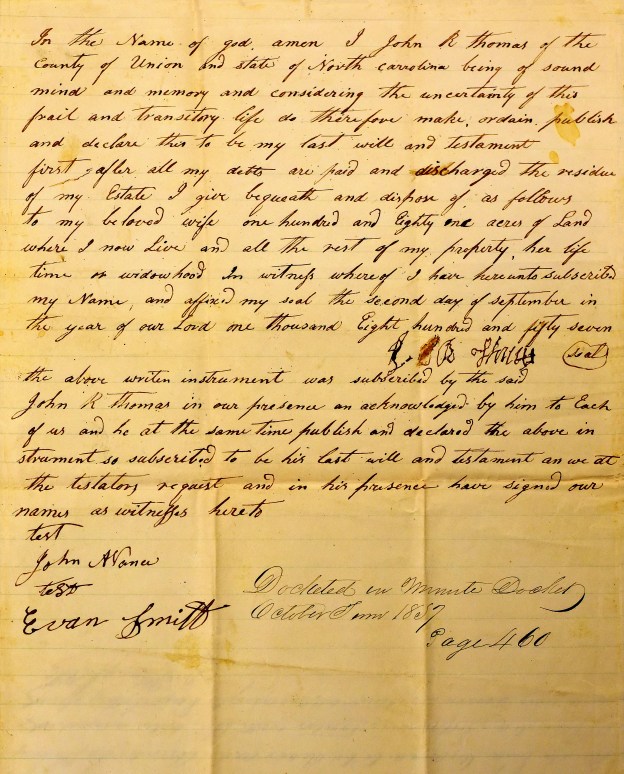 In the Name of god amen I John R Thomas of the
County of Union and state of North carrolina being of sound
mind and memory and considering the uncertainty of this
frail and transitory life do therefore make, ordain, publish
and declare this to be my last will and testament
first, after all my debts are paid and discharged the residue
of my Estate I give bequeath and dispose of, as follows
to my beloved wife one hundred and Eighty one acres of Land
where I now Live and all the rest of my property, her life
time or widowhood In witness whereof I have hereunto subscribed
my Name, and affixed my seal the second day of september in
the year of our Lord one thousand Eight hundred and fifty seven
J R Thomas seal
the above writen instrument was subscribed by the said
John R Thomas in our presence an acknowledged by him to Each
of us and he at the same time publish and declared the above in
strument so subscribed to be his last will and testament an we at
the testators request and in his presence have signed our
names as witnesses hereto
test
John A Vance
test
Evan Smith
Docketed in Minute Docket
October Term 1857
Page 460